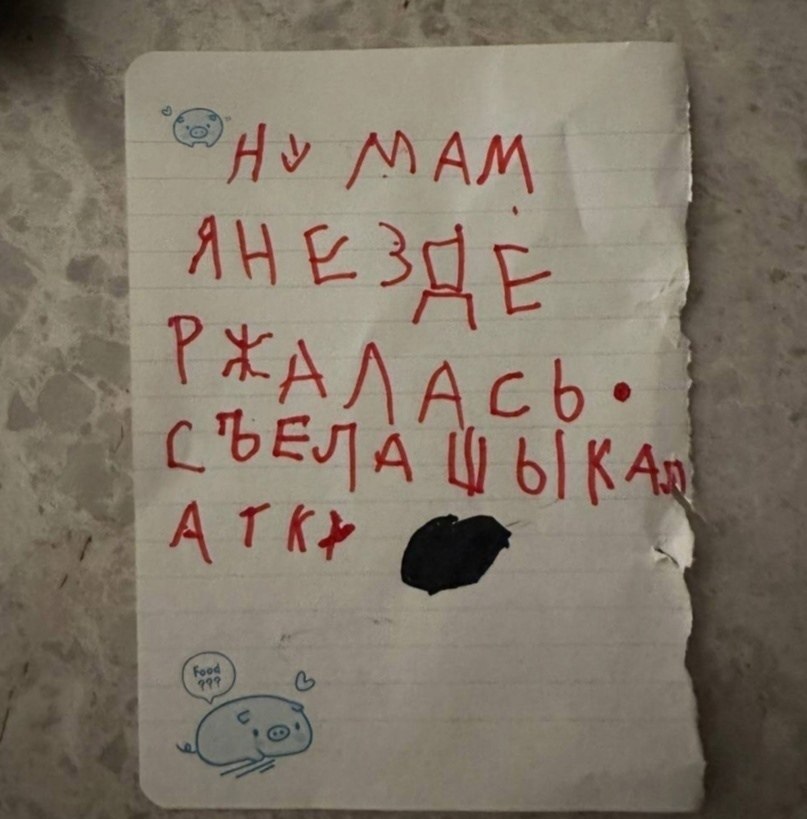 НУ МАМ
ЯНЕЗДЕ
РЖАЛАСЬ.
СЪЕЛА ШЫКАЛ
АТКУ
Food
???